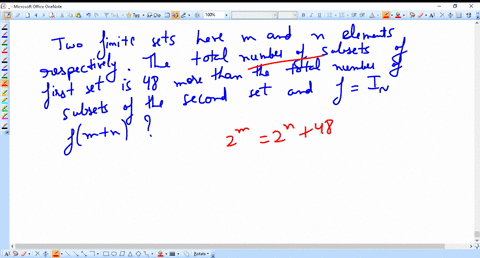 Microsoft Office OneNote
100%
Two finite sets have m and n elements
respectively. The total number of subsets of
first set is 48 more than the total number of
subsets of the second set and f = I_N
f(m+n) ?
2^m = 2^n + 48
Rotate